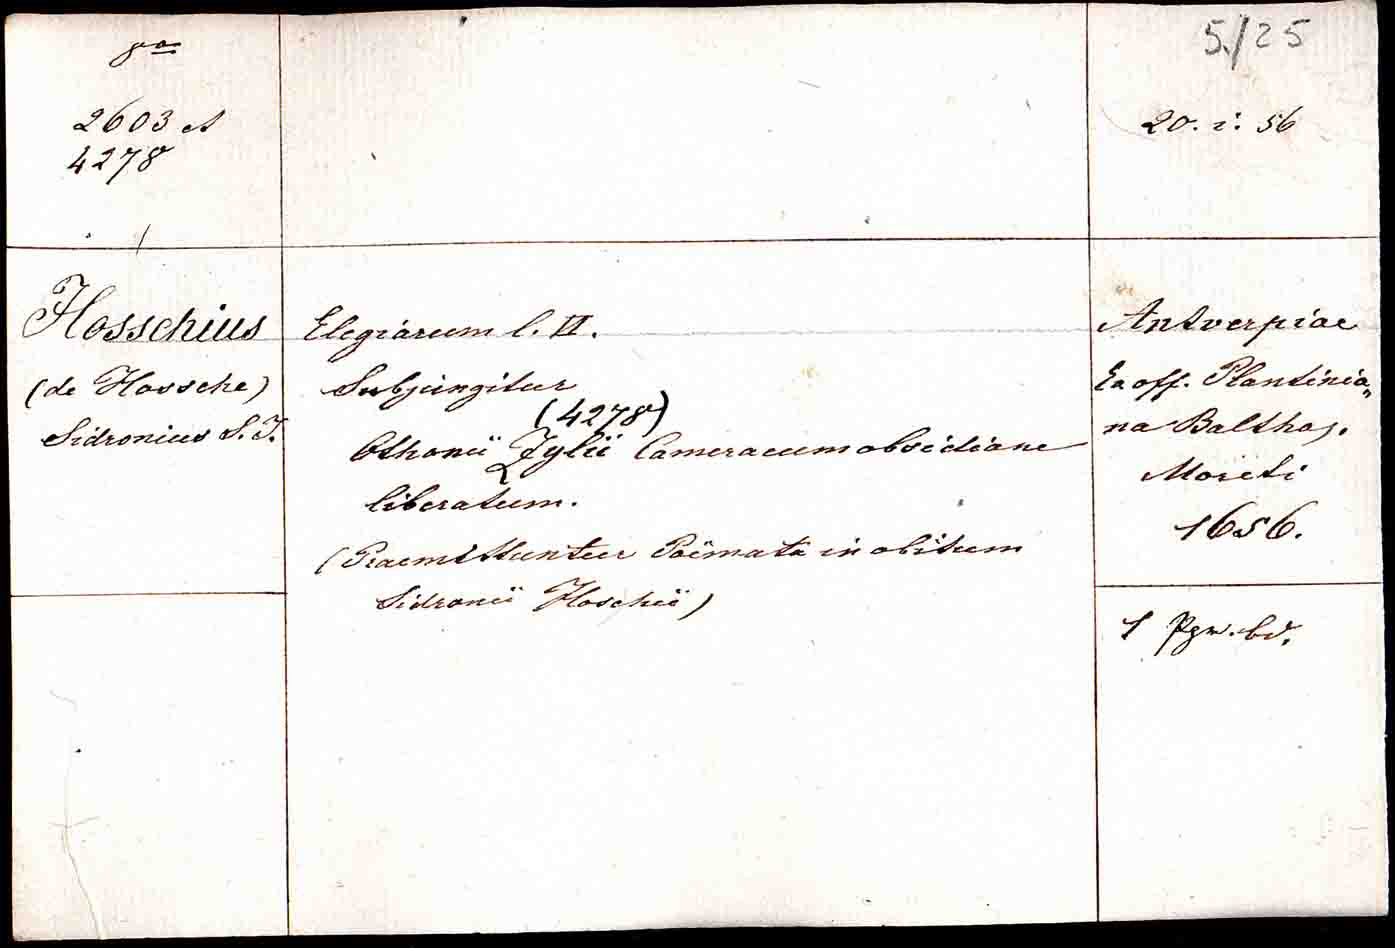 8o
5./25
2603 et
4278
20. i. 56
Hosschius
(de Hossche)
Sidronius S. J.
Elegiarum l. VI.
Subjungitur
(4278)
Othonii Zylii Cameracum obsidione
liberatum.
(Praemittuntur Poëmata in obitum
Sidronii Hoschii)
Antverpiae
Ex off. Plantinia,,
na Balthas.
Moreti
1656.
1 Pgm. bd.